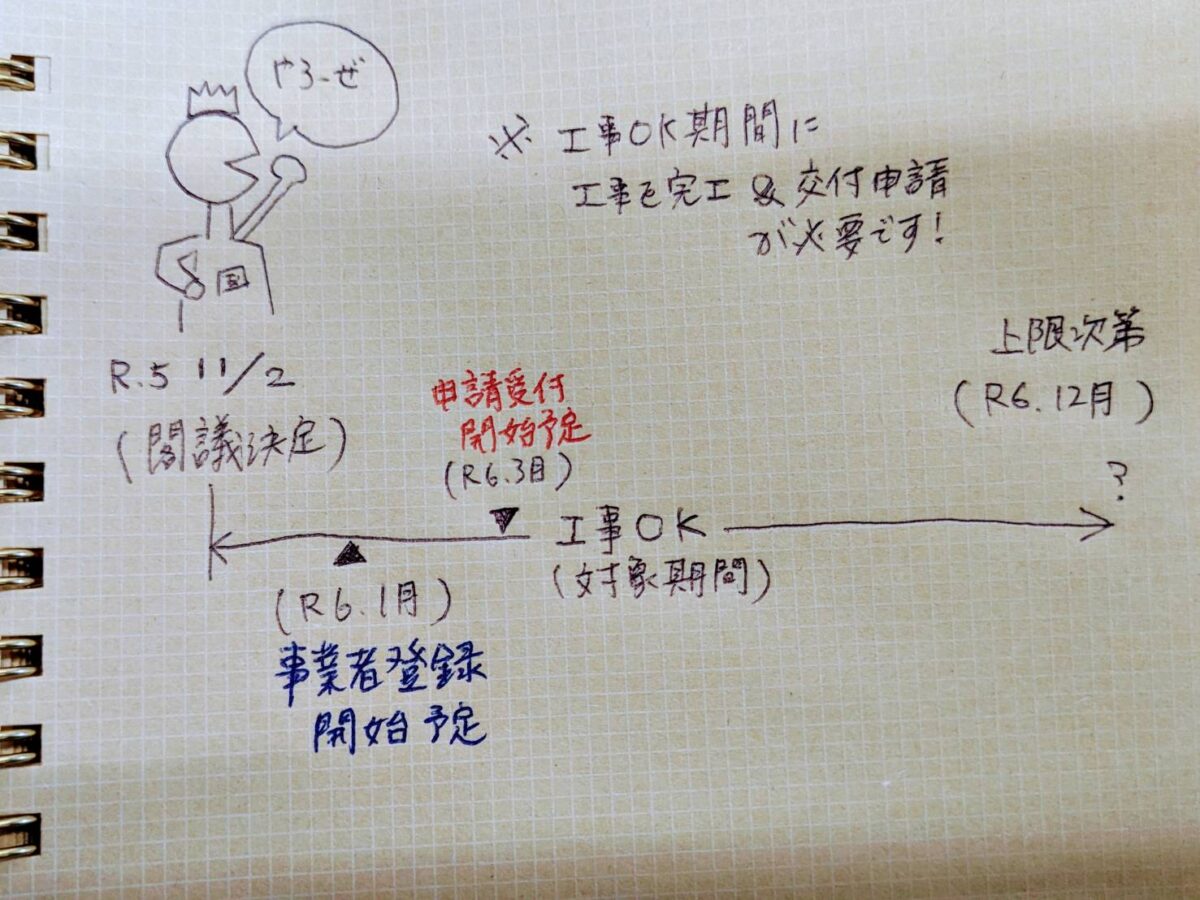 やろーぜ
※ 工事OK期間に
工事を完工 & 交付申請
が必要です!
国
R.5 11/2
(閣議決定)
申請受付
開始予定
(R6.3月)
上限次第
(R6.12月)
?
工事OK
(対象期間)
(R6.1月)
事業者登録
開始予定